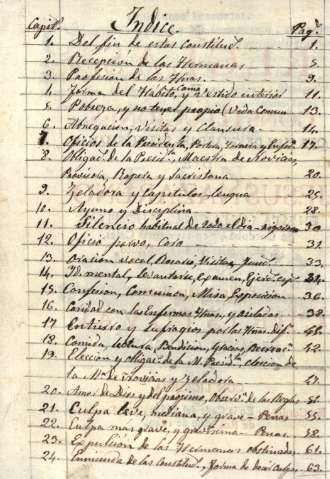 Capit.s Índice Pag.s
1. Del fin de estas Constituc.s 1.
2. Recepcion de las Hermanas 5.
3. Profesion de las Hnas. 9.
4. Forma del Habito, Cama y vestido interior 11.
5. Pobreza, y no tener propio, Vida Comun 13.
6. Abnegacion, Visitas y Clausura 14.
7. Oficios de la Presidenta, Portera, Tornera y Enferm.a 17.
8. Obligac.s de la Presid.a, Maestra de Novicias,
Provisora, Ropera y Sacristana 20.
9. Zeladora y Capitulos, lengua 25.
10. Ayuno y Disciplina 28.
11. Silencio habitual de todo el dia, rigoroso 30.
12. Oficio parvo, Coro 32.
13. Oracion vocal, Rosario, Visitas 33.
14. Id. mental, Levantarse, Examen, Ejerc. 34.
15. Confesion, Comunion, Misa, Exposicion 36.
16. Caridad con las Enfermas Hnas. y asiladas 38.
17. Entierro y Sufragios por las Hnas. dif. 42.
18. Comida, lectura, Bendicion, Gracias, Recreac. 44.
19. Eleccion y obligac.s de la M. Presid.a, eleccion de
la M.a de Novicias y Zeladora 47.
20. Amor de Dios y del projimo, Observ.a de las Reglas 51.
21. Culpa leve, mediana, y grave - Penas 55.
22. Culpa mas grave, y gravisima - Penas 58.
23. Expulsion de las Hermanas obstinadas 61.
24. Enmienda de las Constituc.s, Forma de decir Culpa 63.